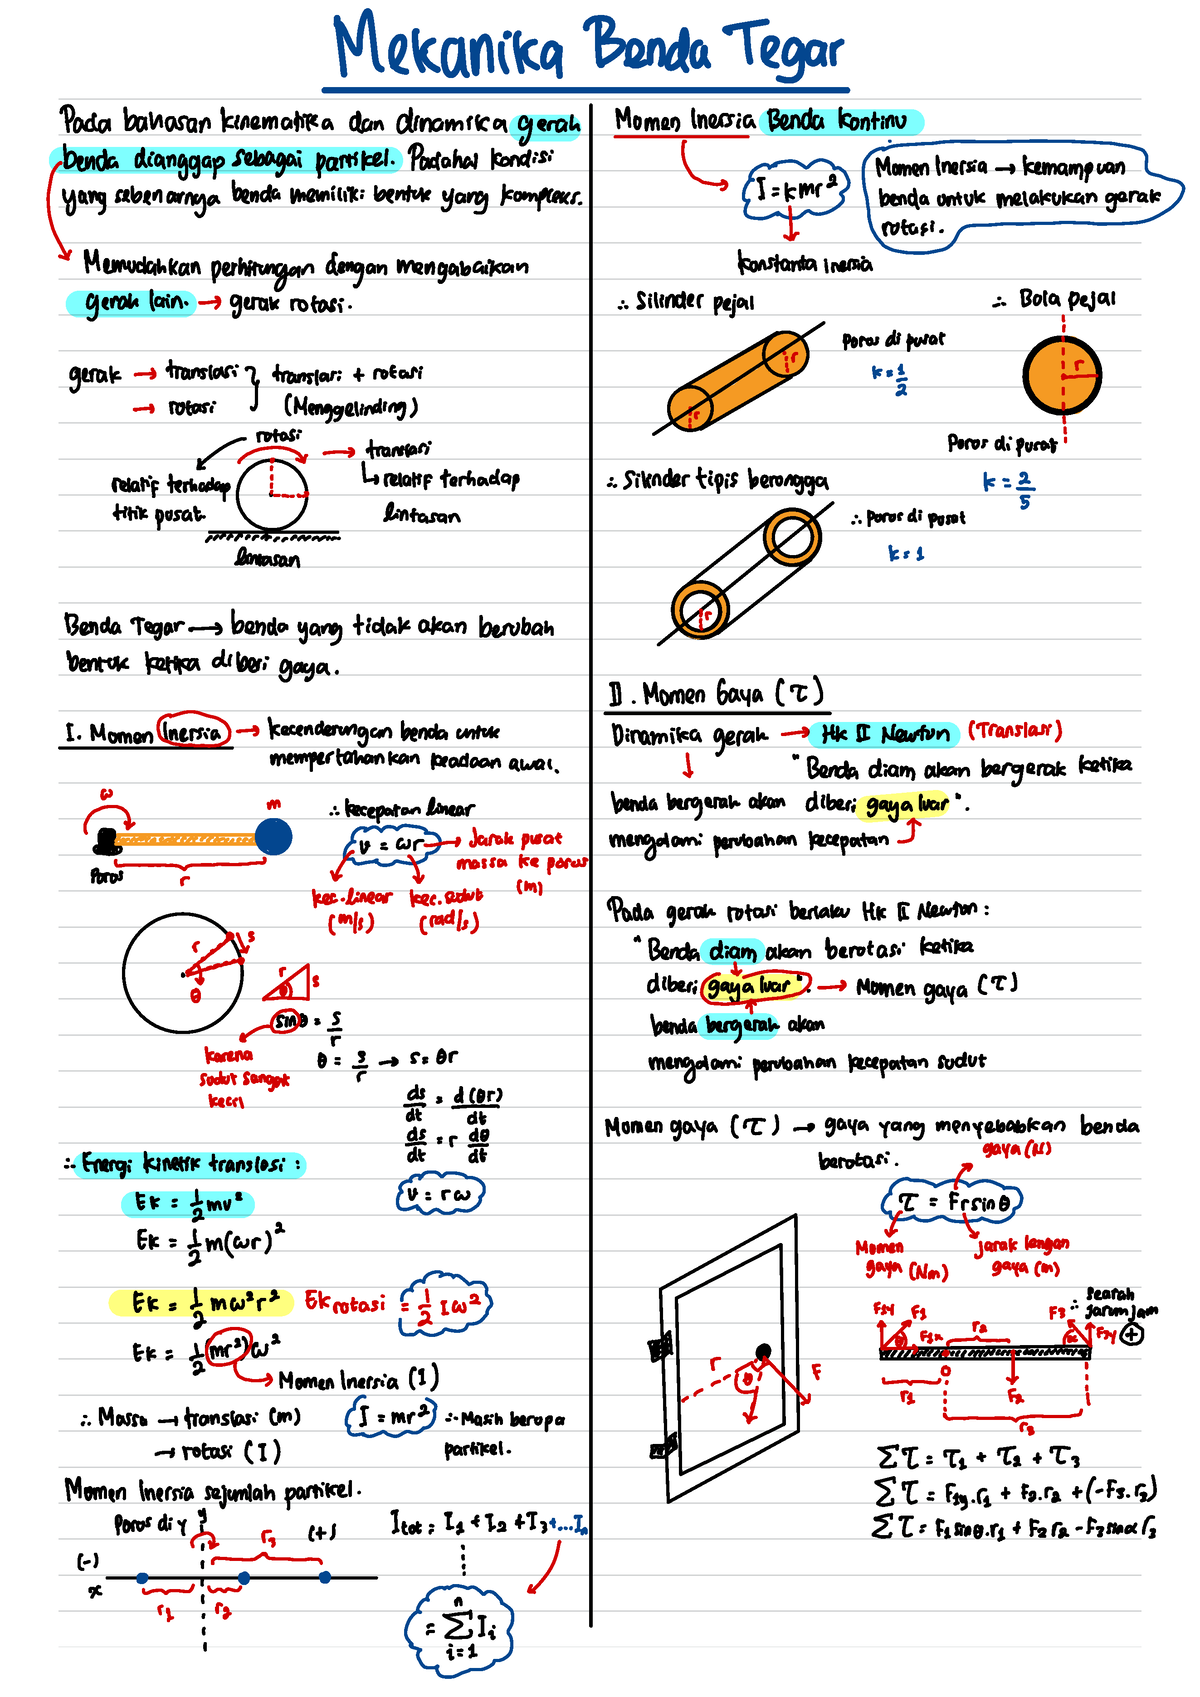 Mekanika Benda Tegar
Pada bahasan kinematika dan dinamika gerak
benda dianggap sebagai partikel. Padahal kondisi
yang sebenarnya benda memiliki bentuk yang kompleks.
Memudahkan perhitungan dengan mengabaikan
gerak lain. → gerak rotasi.
gerak → translasi } translasi + rotasi
→ rotasi (Menggelinding)
rotasi
→ translasi
relatif terhadap
titik pusat.
↳ relatif terhadap
lintasan
lintasan
Benda Tegar → benda yang tidak akan berubah
bentuk ketika diberi gaya.
I. Momen Inersia → kecenderungan benda untuk
mempertahankan keadaan awal.
ω
m
Poros
r
∴ kecepatan linear
v = ωr → Jarak pusat
massa ke poros
(m)
kec. linear
(m/s)
kec. sudut
(rad/s)
r
s
θ
r
s
θ
sinθ = s/r
karena
sudut sangat
kecil
θ = s/r → s = θr
ds/dt = d(θr)/dt
ds/dt = r dθ/dt
v = rω
∴ Energi kinetik translasi :
Ek = 1/2 mv²
Ek = 1/2 m(ωr)²
Ek = 1/2 mω²r²
Ek rotasi = 1/2 Iω²
Ek = 1/2 (mr²)ω²
→ Momen Inersia (I)
∴ Massa → translasi (m)
→ rotasi (I)
I = mr² ∴ Masih berupa
partikel.
Momen Inersia sejumlah partikel.
Poros di y
y
r3
(+)
(-)
x
r1
r2
Itot = I1 + I2 + I3 + ... In
= Σ Ii
n
i=1
Momen Inersia Benda Kontinu
I = kmr²
konstanta inersia
Momen Inersia → kemampuan
benda untuk melakukan gerak
rotasi.
∴ Silinder pejal
r
r
Poros di pusat
k = 1/2
∴ Bola pejal
r
Poros di pusat
k = 2/5
∴ Silinder tipis berongga
r
∴ Poros di pusat
k = 1
II. Momen Gaya (τ)
Dinamika gerak → Hk II Newton (Translasi)
"Benda diam akan bergerak ketika
diberi gaya luar".
benda bergerak akan
mengalami perubahan kecepatan
Pada gerak rotasi berlaku Hk II Newton :
"Benda diam akan berotasi ketika
diberi gaya luar". → Momen gaya (τ)
benda bergerak akan
mengalami perubahan kecepatan sudut
Momen gaya (τ) → gaya yang menyebabkan benda
berotasi.
gaya (N)
τ = Fr sinθ
Momen
gaya (Nm)
jarak lengan
gaya (m)
r
θ
F
∴ searah
jarum jam
+
F1y
F1
θ
F1x
r2
F3
α
F3y
r1
O
F2
r3
Στ = τ1 + τ2 + τ3
Στ = F1y.r1 + F2.r2 + (-F3.r3)
Στ = F1 sinθ.r1 + F2 r2 - F3 sinα r3